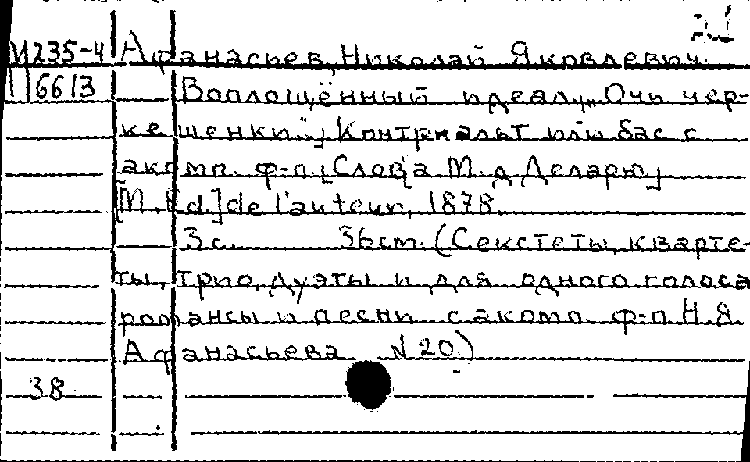 М235-4 Афанасьев, Николай Яковлевич.
П 6613 Воплощённый идеал. „Очи чер-
кешенки..." Контральт или бас с
акомп. ф-п. Слова М. д. Деларю
[M. Ed.] de l'auteur, 1878.
3 с. 36 cm. (Секстеты, кварте-
ты, трио, дуэты и для одного голоса
романсы и песни с акомп. ф-п. Н. Я.
Афанасьева N 20)
38